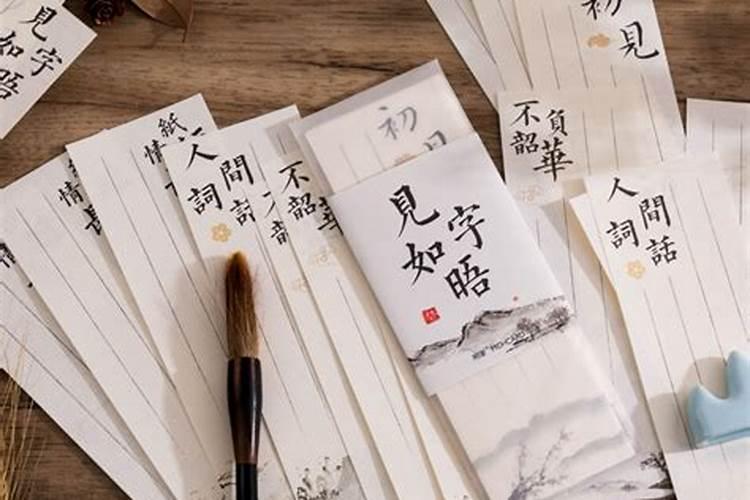 見字
如晤
初見
紙
情
情長
人間
詞話
不
韶華
初見
見字
如晤
不負
韶華
人間
詞話